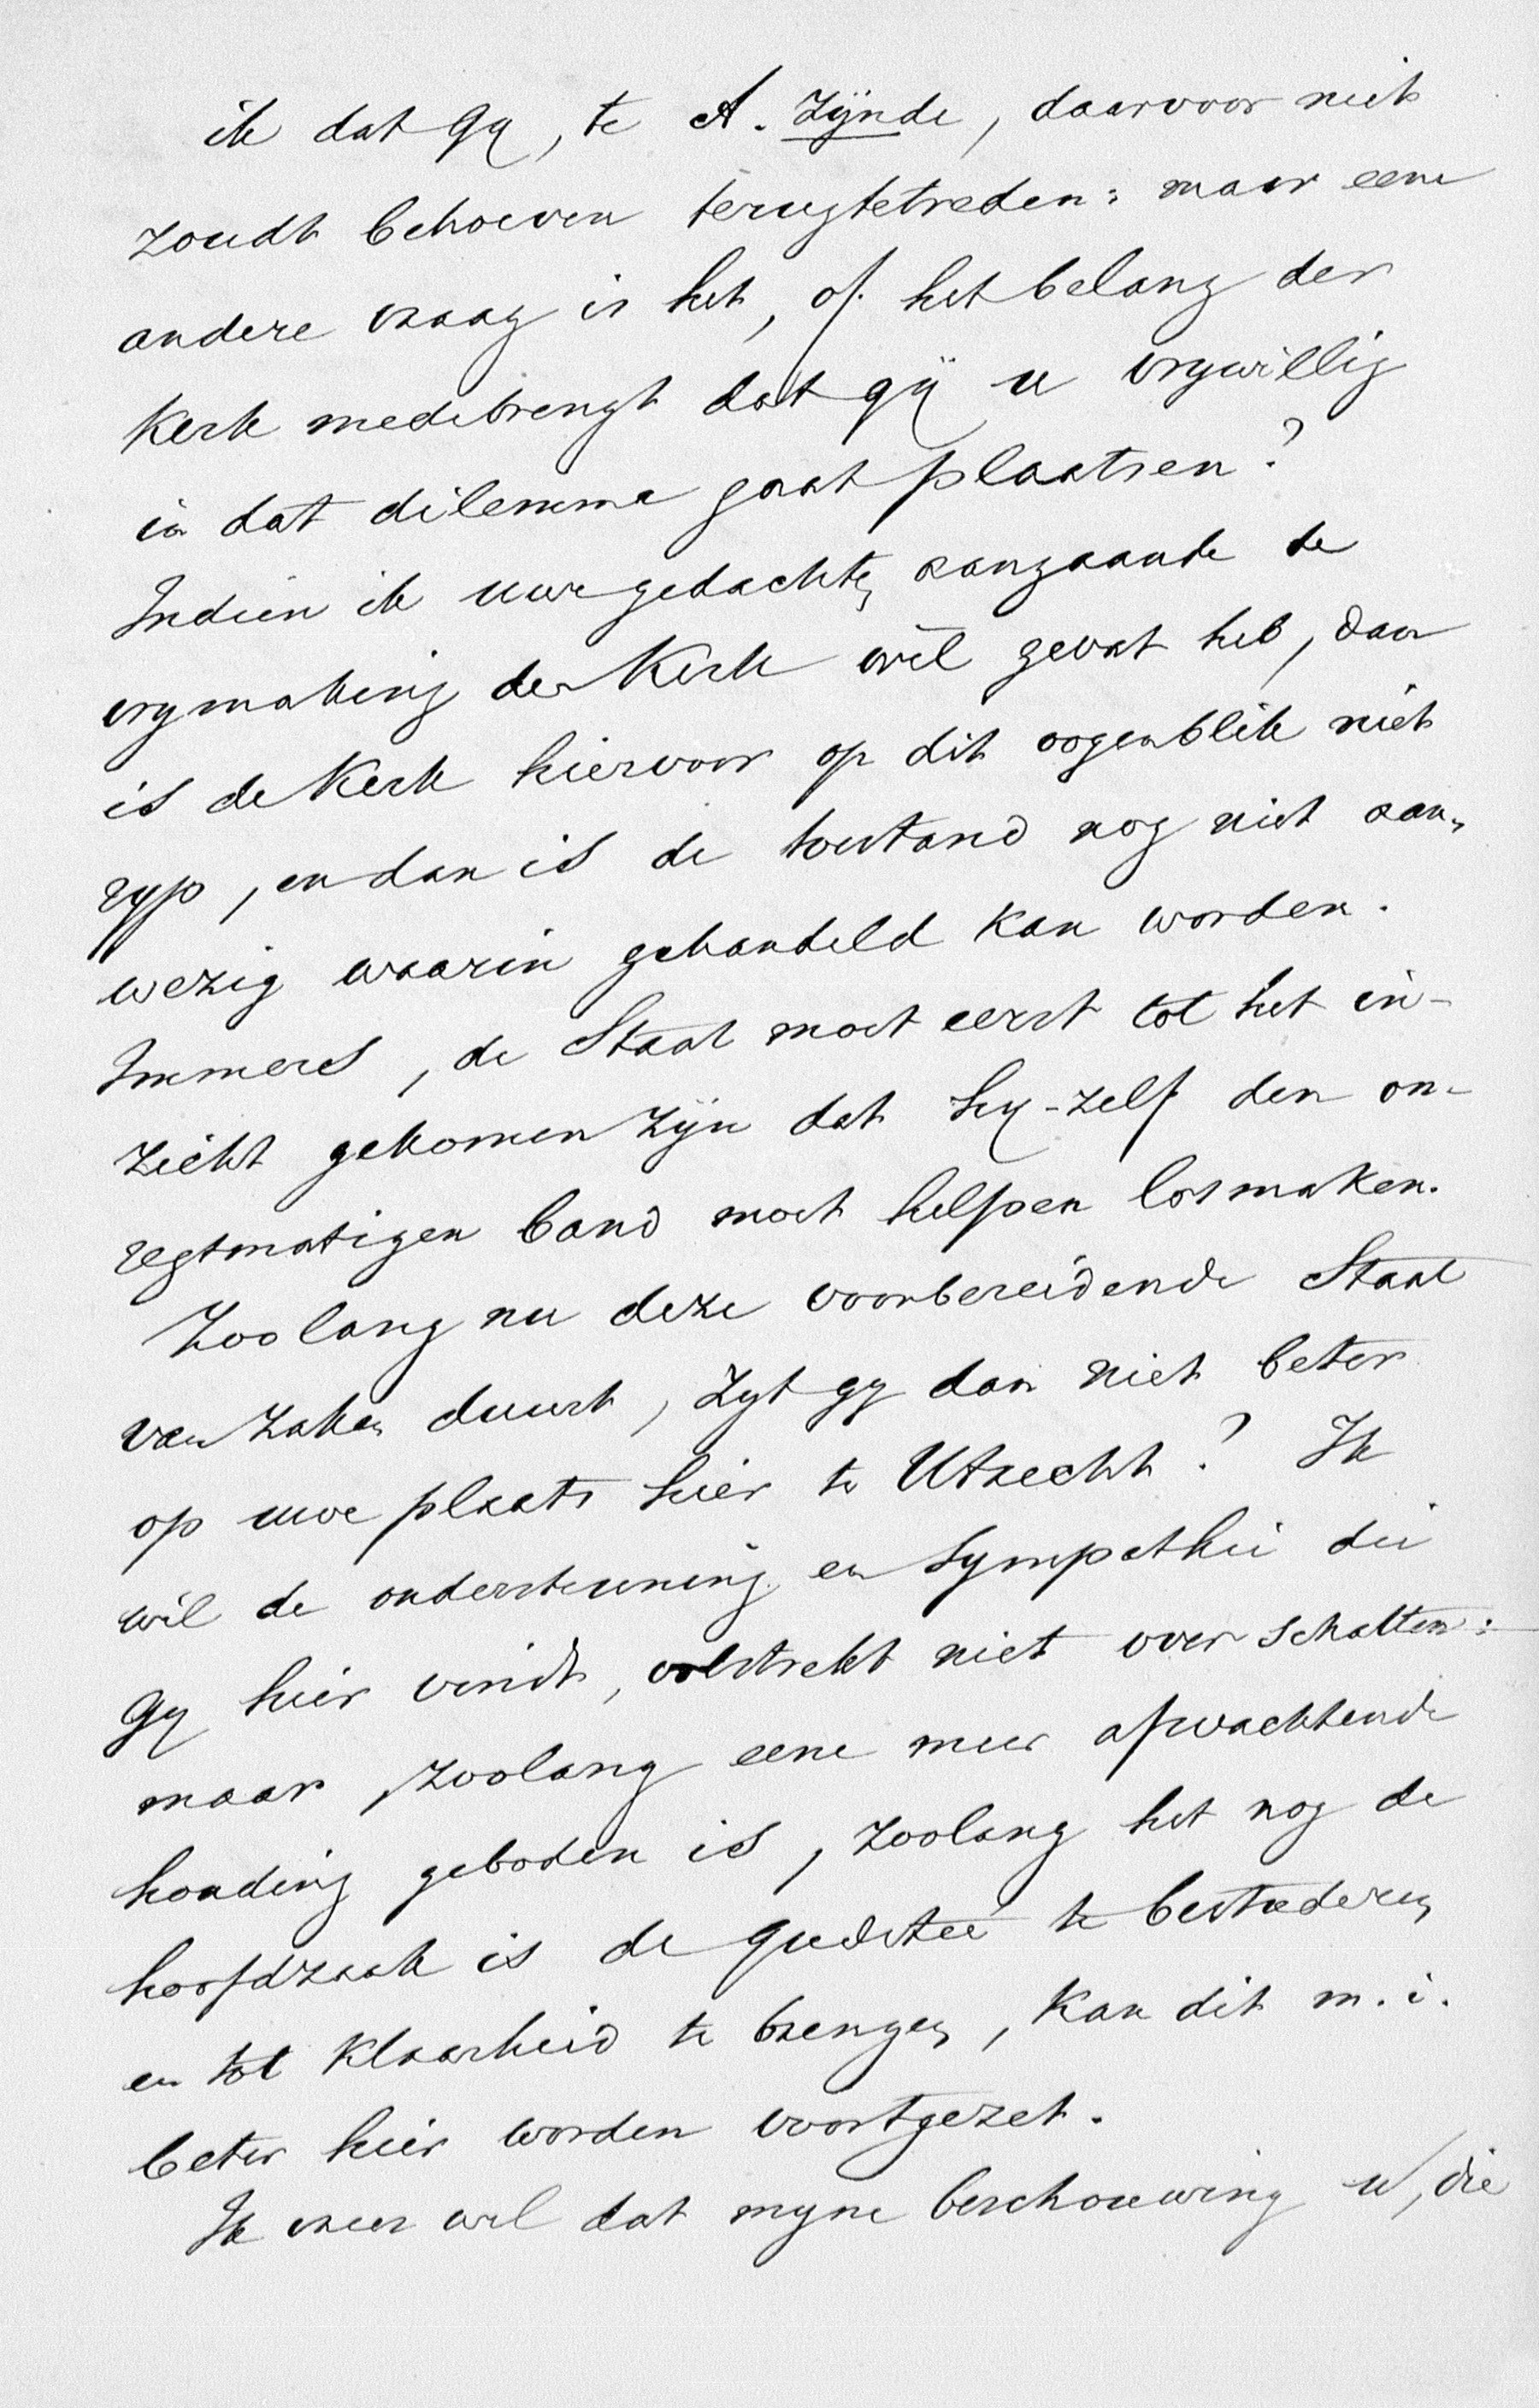 ik dat Gy, te A. zijnde, daarvoor niet
zoudt behoeven terugtetreden: maar eene
andere vraag is het, of het belang der
Kerk medebrengt dat gij u vrywillig
in dat dilemma gaat plaatsen?
Indien ik uwe gedachten aangaande de
vrymaking der Kerk wèl gevat heb, dan
is de Kerk hiervoor op dit oogenblik niet
ryp, en dan is de toestand nog niet aan-
wezig waarin gehandeld kan worden.
Immers, de Staat moet eerst tot het in-
zicht gekomen zijn dat hy-zelf den on-
regtmatigen band moet helpen losmaken.
Zoolang nu deze voorbereidende Staat
van zaken duurt, zyt gy dan niet beter
op uwe plaats hier te Utrecht? Ik
wil de ondersteuning en sympathie die
Gy hier vindt, volstrekt niet overschatten:
maar, zoolang eene meer afwachtende
houding geboden is, zoolang het nog de
hoofdzaak is de quaestie te bestuderen
en tot klaarheid te brengen, kan dit m.i.
beter hier worden voortgezet.
Ik vrees wel dat myne beschouwing u, die